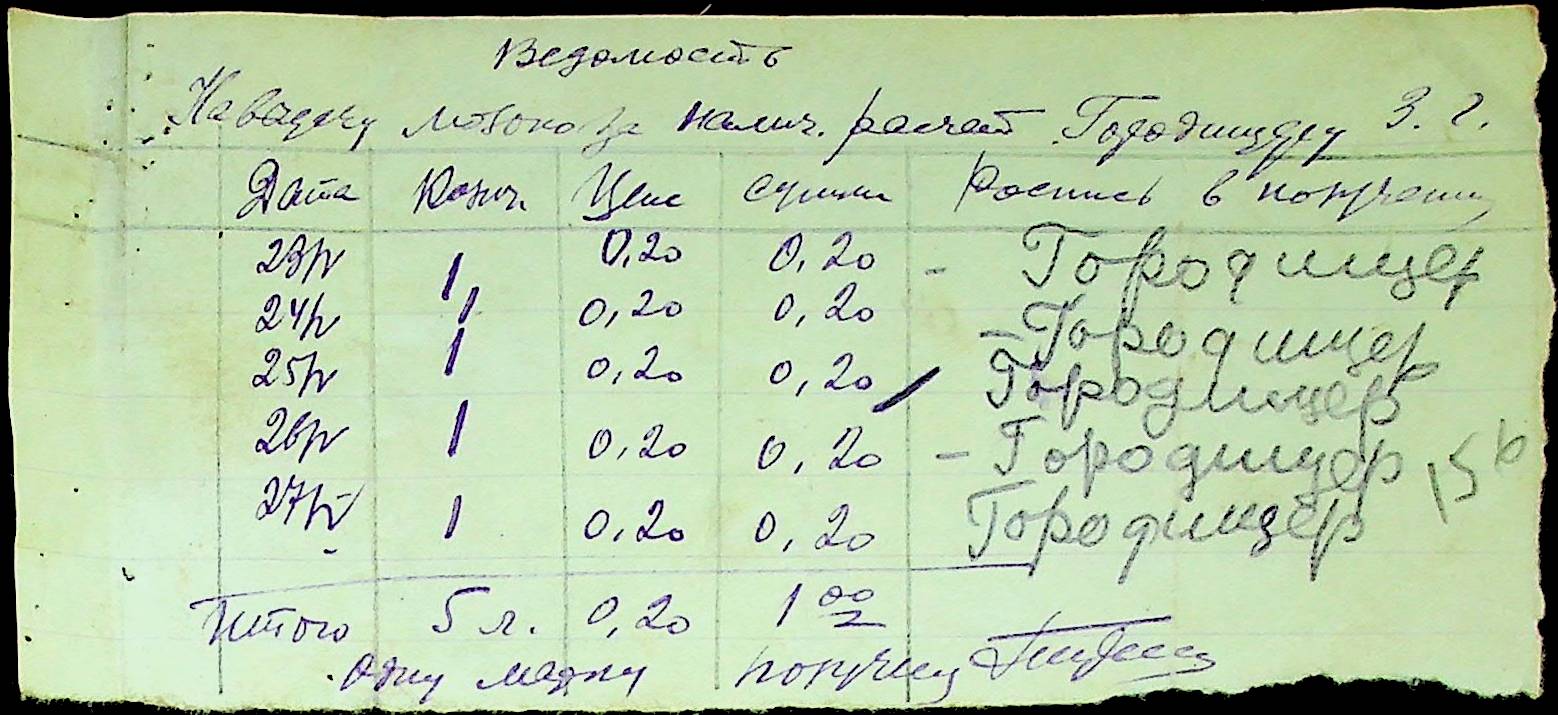 Ведомость
На выдачу молока за налич. расчет Городищеру З. Г.
Дата Колич. Цена Сумма Роспись в получении
23/IV 1 0,20 0,20 - Городищер
24/IV 1 0,20 0,20 - Городищер
25/IV 1 0,20 0,20 Городищер
26/IV 1 0,20 0,20 - Городищер
27/IV 1 0,20 0,20 Городищер
Итого 5 л. 0,20 1 00
Одну марку получил